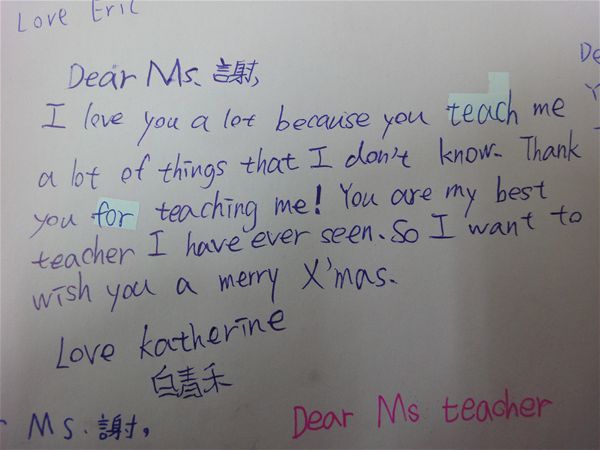 Love Eric
Dear Ms. 謝,
I love you a lot because you teach me
a lot of things that I don't know. Thank
you for teaching me! You are my best
teacher I have ever seen. So I want to
wish you a merry X'mas.
Love katherine
白青禾
Ms. 謝,
Dear Ms teacher